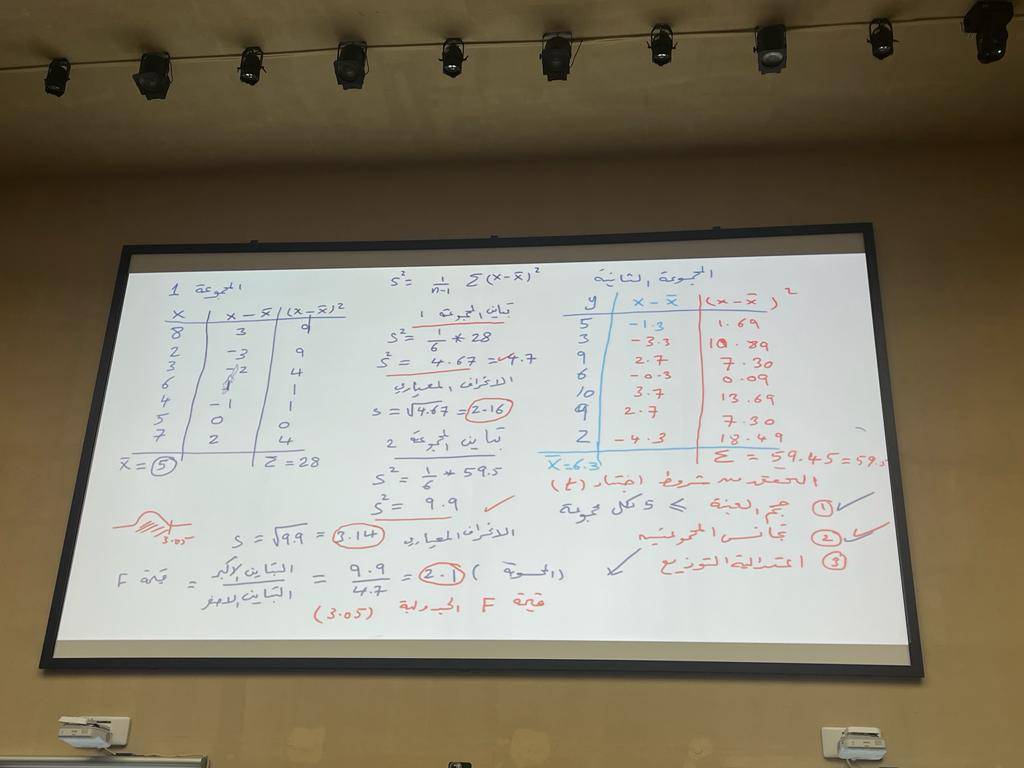 المجموعة 1
x | x - x̄ | (x - x̄)²
8 | 3 | 9
2 | -3 | 9
3 | -2 | 4
6 | 1 | 1
4 | -1 | 1
5 | 0 | 0
7 | 2 | 4
x̄ = 5 Σ = 28
3.05
S² = 1/n-1 Σ(x - x̄)²
تباين المجموعة 1
S² = 1/6 * 28
S² = 4.67 = 4.7
الانحراف المعياري
S = √4.67 = 2.16
تباين المجموعة 2
S² = 1/6 * 59.5
S² = 9.9
S = √9.9 = 3.14 الانحراف المعياري
المجموعة الثانية
y | x - x̄ | (x - x̄)²
5 | -1.3 | 1.69
3 | -3.3 | 10.89
9 | 2.7 | 7.30
6 | -0.3 | 0.09
10 | 3.7 | 13.69
9 | 2.7 | 7.30
2 | -4.3 | 18.49
x̄ = 6.3 Σ = 59.45 = 59.5
التحقق من شروط اختبار (t)
① حجم العينة ≥ 5 لكل مجموعة
② تجانس المجموعتين
③ اعتدالية التوزيع
قيمة F = التباين الأكبر / التباين الاصغر = 9.9 / 4.7 = 2.1 (المحسوبة)
قيمة F الجدولية (3.05)